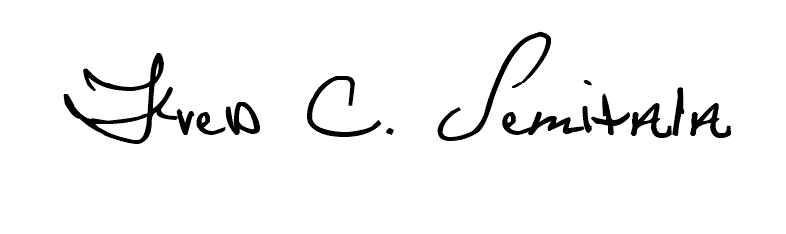 Fred C. Semitala